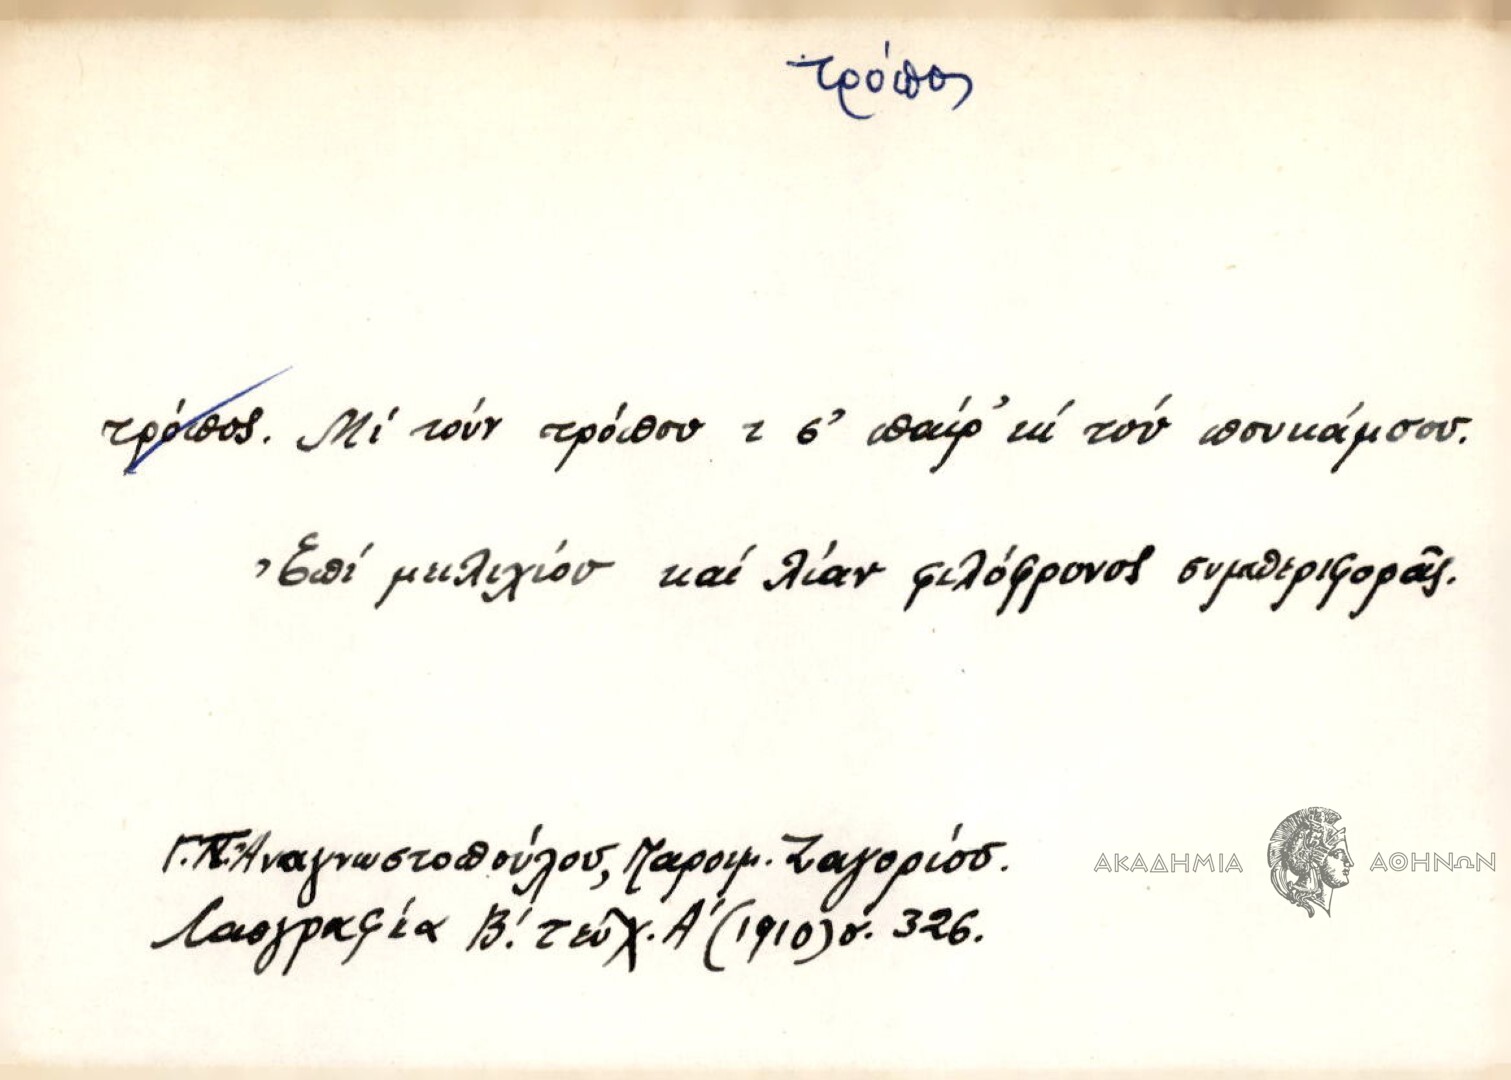 τρόπος
τρόπος. Μί τούν τρόπου τ σ' παίρ' κί τού πουκάμσου.
Ἐπί μειλιχίου καί λίαν φιλόφρονος συμπεριφορᾶς.
Γ. Π. Ἀναγνωστοπούλου, Παροιμ. Ζαγορίου.
Λαογραφία Β'. τεῦχ. Α' (1910) σ. 326.
ΑΚΑΔΗΜΙΑ ΑΘΗΝΩΝ